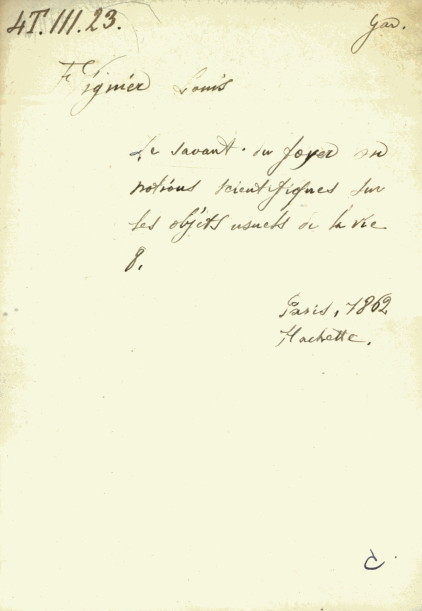 4T.III.23.
Gar.
Figuier Louis
Le savant du foyer ou
notions scientifiques sur
les objéts usuels de la vie
8.
Paris, 1862
Hachette.
C.